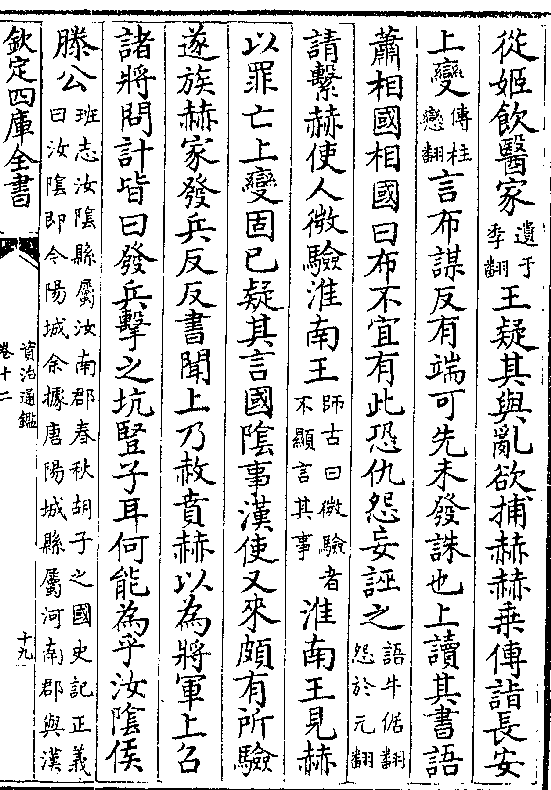 從姬飲醫家遺于季翻王疑其與亂欲捕赫赫乗傳詣長安
上變傳柱戀翻言布謀反有端可先未發誅也上讀其書語
蕭相國相國曰布不宜有此恐仇怨妄誣之語牛倨翻怨於元翻
請繫赫使人微驗淮南王師古曰微驗者不顯言其事淮南王見赫
以罪亡上變固已疑其言國隂事漢使又來頗有所驗
遂族赫家發兵反反書聞上乃赦賁赫以為將軍上召
諸將問計皆曰發兵擊之坑豎子耳何能為乎汝隂侯
滕公班志汝隂縣屬汝南郡春秋胡子之國史記正義曰汝隂即今陽城余據唐陽城縣屬河南郡與漢
欽定四庫全書
資治通鑑
卷十二
十九